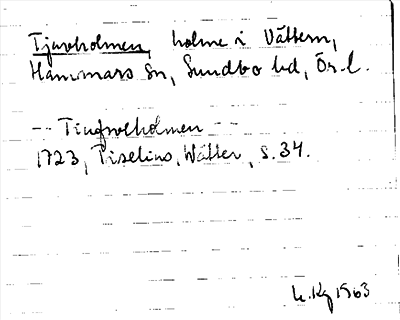 Tjuvholmen, holme i Vättern,
Hammars sn, Sundbo hd, Ör. l.
-- Tiufwelholmen --
1723, Tiselius, Wätter, s. 34.
1963